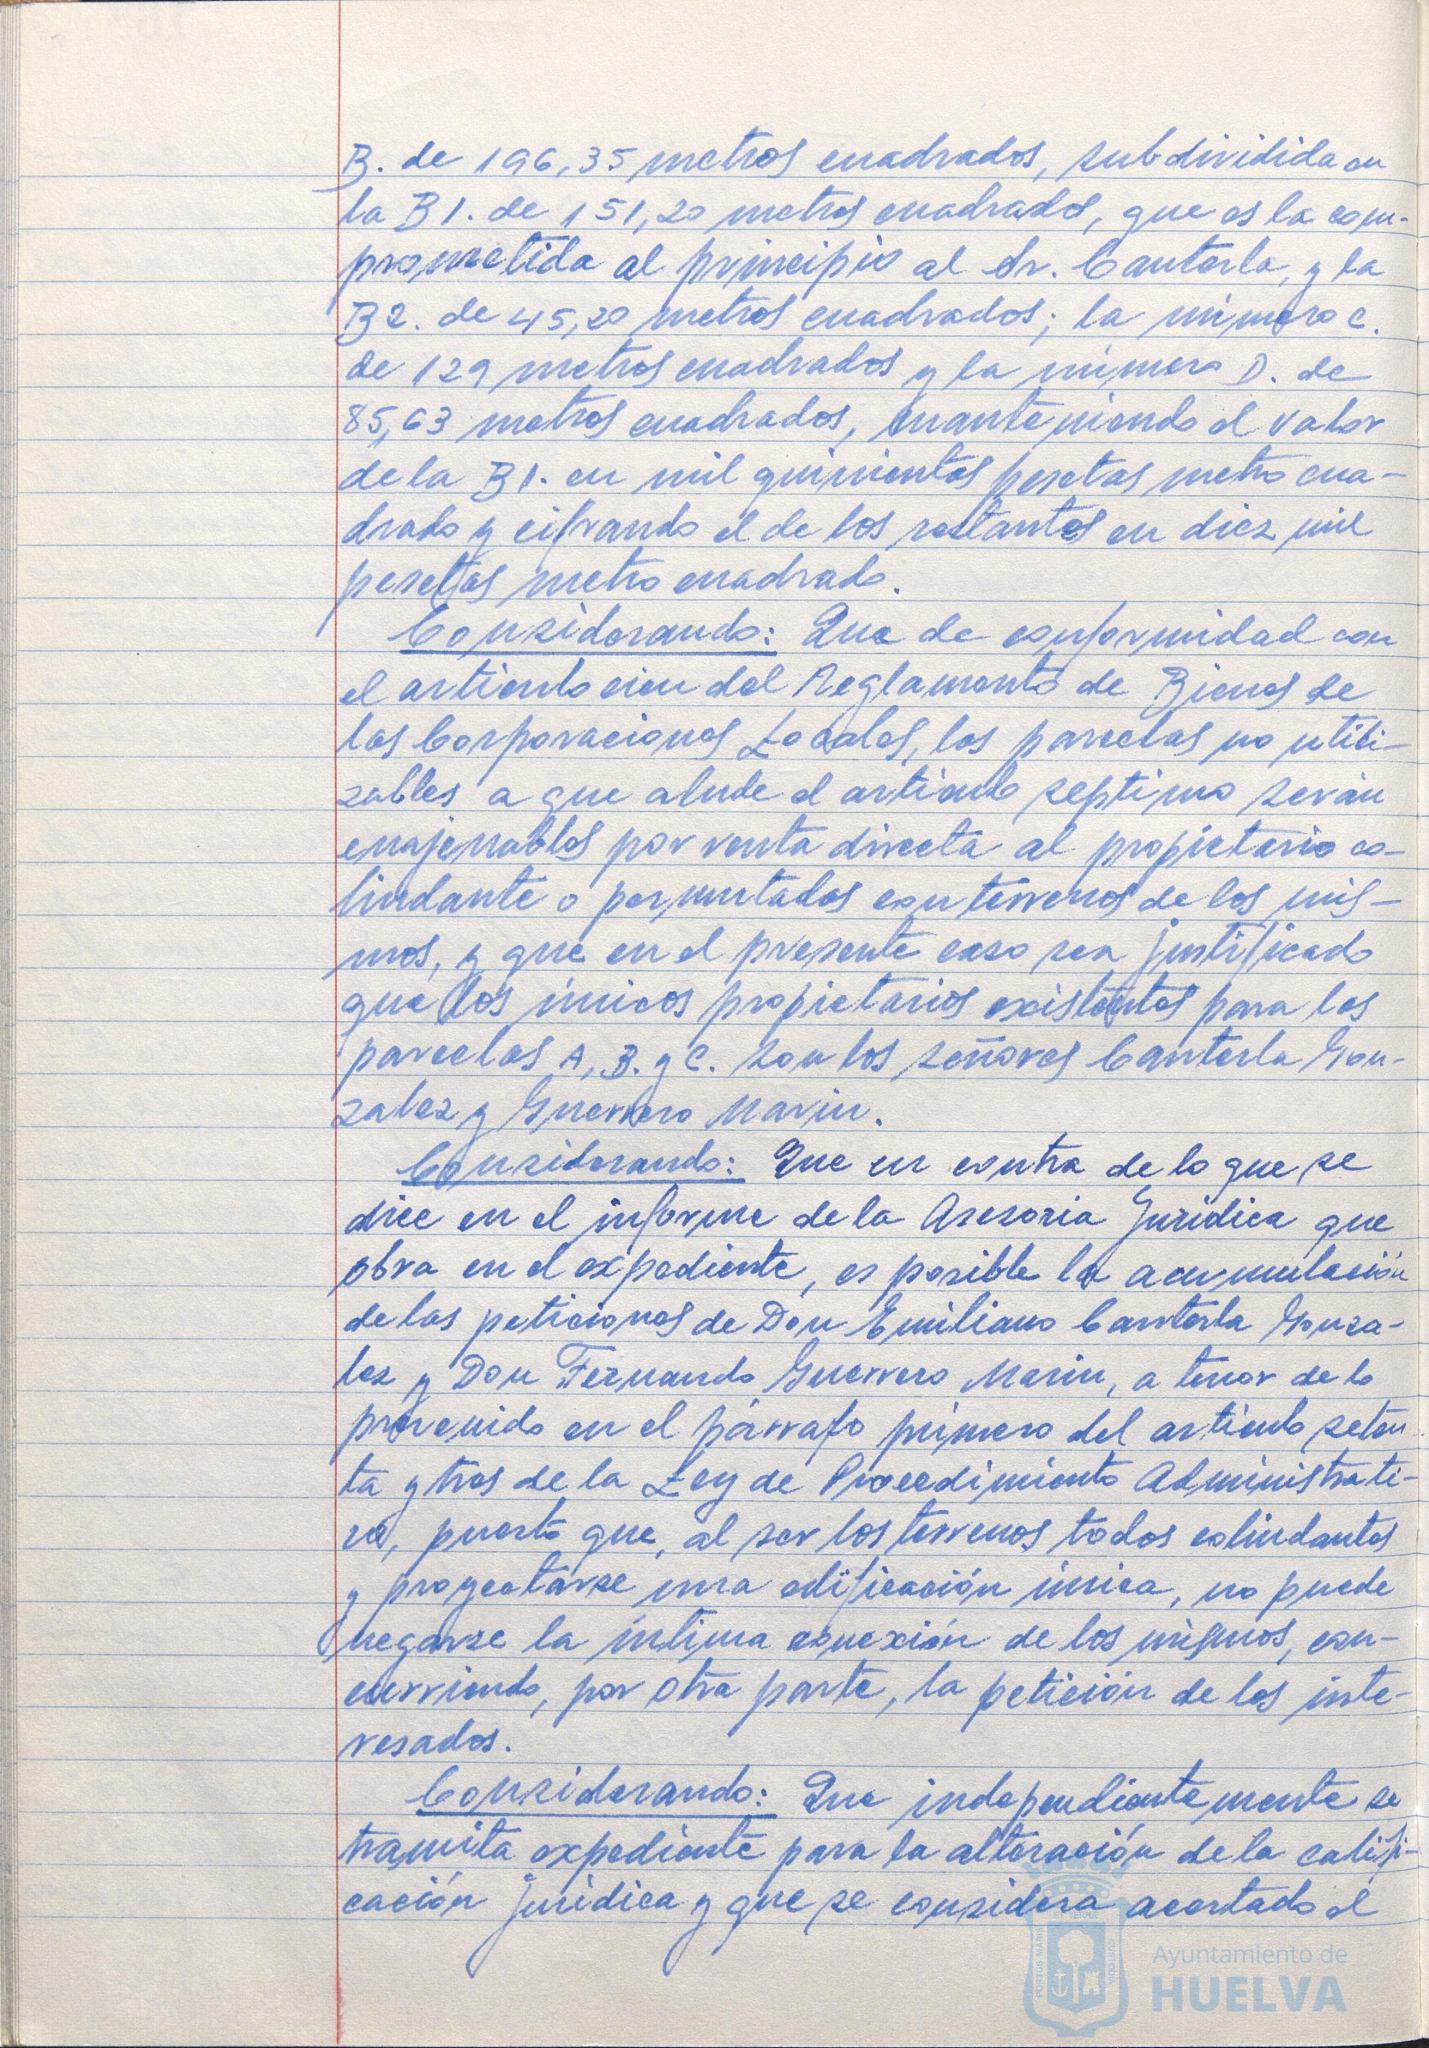 B. de 196,35 metros cuadrados, subdividida en
la B1. de 151,20 metros cuadrados, que es la com-
prometida al principio al Sr. Canterla, y la
B2. de 45,20 metros cuadrados; la número C.
de 129 metros cuadrados y la número D. de
85,63 metros cuadrados, manteniendo el valor
de la B1. en mil quinientos pesetas metro cua-
drado y cifrando el de los restantes en diez mil
pesetas metro cuadrado.
Considerando: Que de conformidad con
el articulo cien del Reglamento de Bienes de
las Corporaciones Locales, las parcelas no utili-
zables a que alude el articulo septimo serán
enajenables por venta directa al propietario co-
lindante o permutados con terrenos de los mis-
mos, y que en el presente caso sea justificado
que los únicos propietarios existentes para las
parcelas A, B. y C. son los señores Canterla Gon-
zalez y Guerrero Marin.
Considerando: Que en contra de lo que se
dice en el informe de la Asesoria Juridica que
obra en el expediente, es posible la acumulación
de las peticiones de Don Emiliano Canterla Gonza-
lez y Don Fernando Guerrero Marin, a tenor de lo
prevenido en el párrafo primero del articulo seten-
ta y tres de la Ley de Procedimiento Administrati-
vo, puesto que, al ser los terrenos todos colindantes
y proyectarse una edificación única, no puede
negarse la íntima conexión de los mismos, con-
curriendo, por otra parte, la petición de los inte-
resados.
Considerando: Que independientemente se
tramita expediente para la alteración de la califi-
cación juridica y que se considera acertado el
Ayuntamiento de
HUELVA